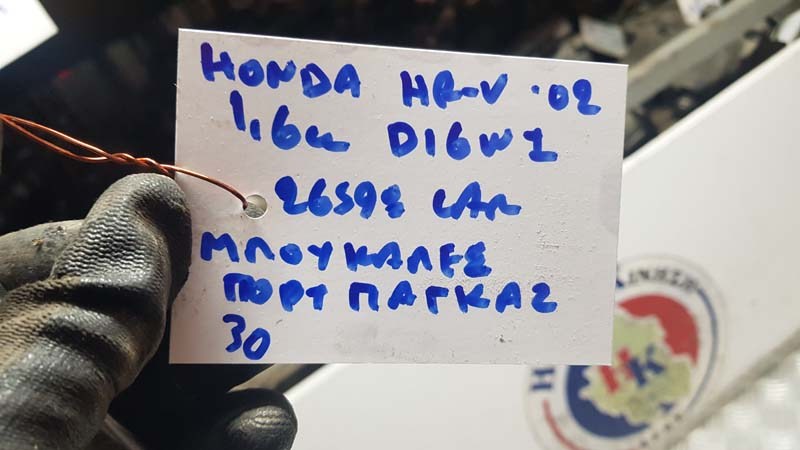 HONDA HR-V '02
1,6cc D16W1
26592 CAR
ΜΠΟΥΚΑΛΕΣ
ΠΟΡΤ ΠΑΓΚΑΖ
30
ΚΙΝΗΣΗ
Η
НК